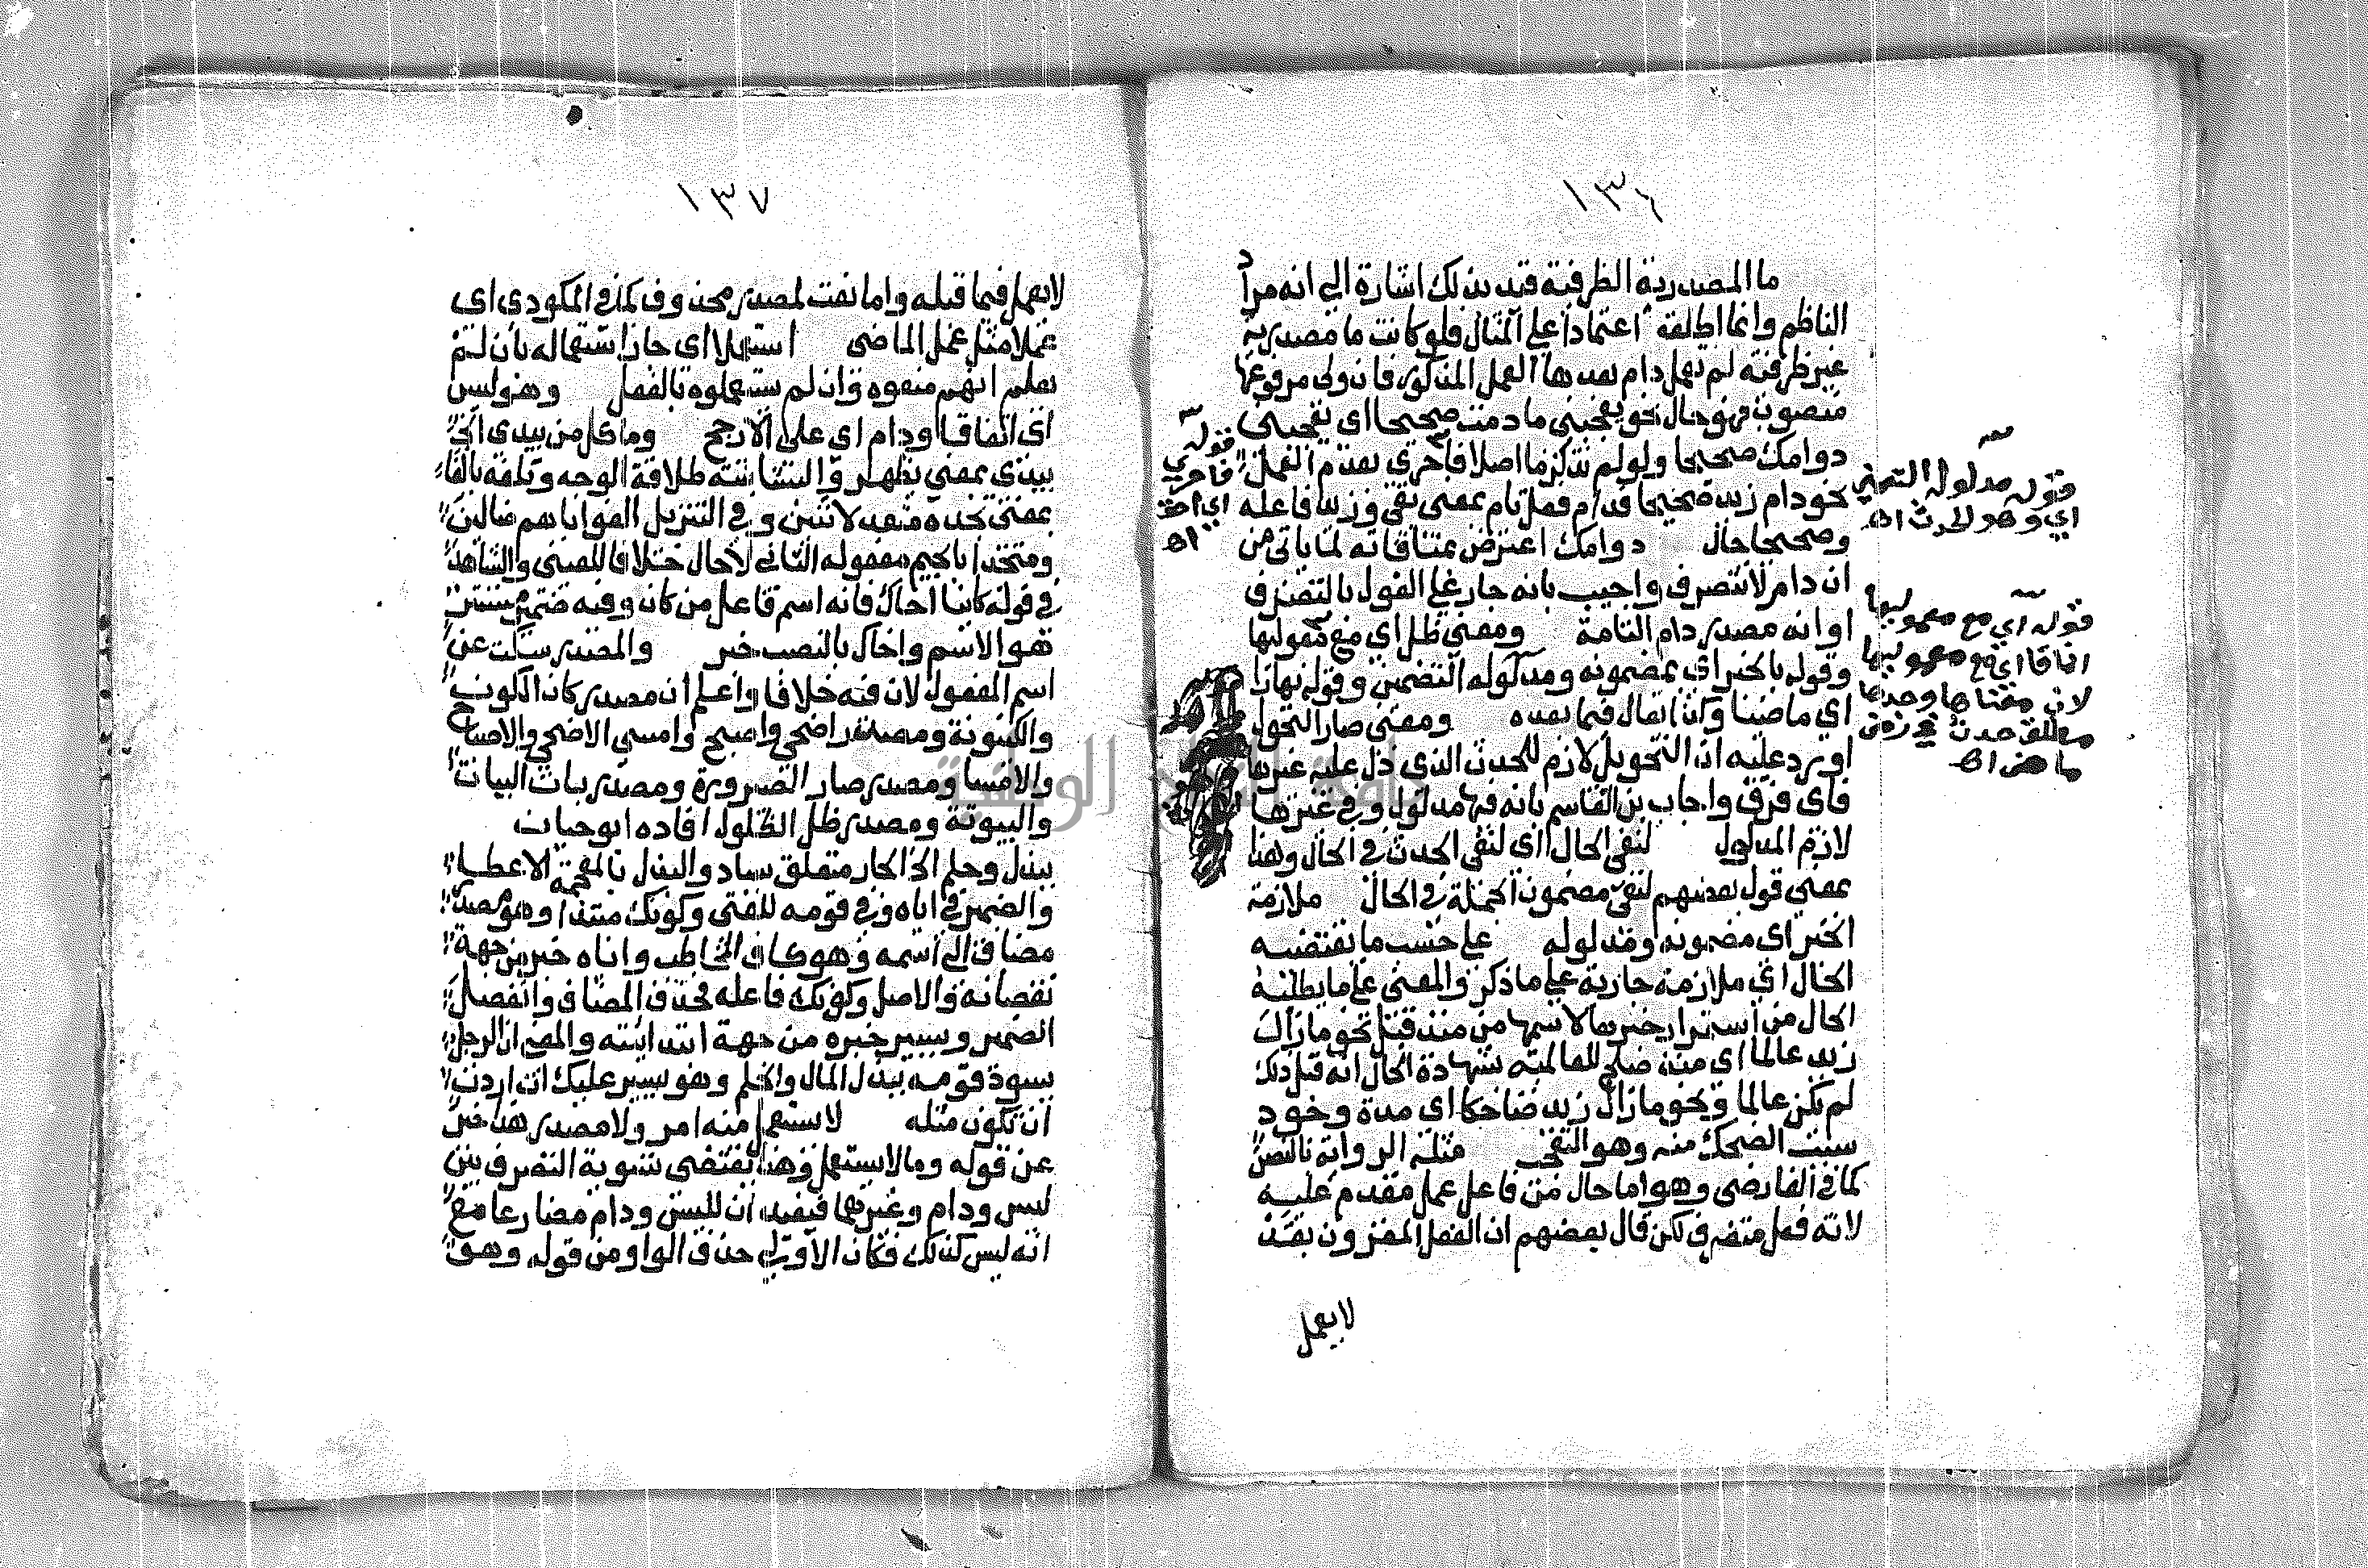 ١٣٦
ما المصدرية الظرفية قيد بذلك اشارة الى انه مراد
الناظم وانما اطلقه اعتمادا على المثال فلو كانت ما مصدرية
غير ظرفية لم تعمل دام بعدها العمل المذكور فان ولى مرفوعها
منصوب فهو حال نحو يعجبنى ما دمت صحيحا اى يعجبنى
دوامك صحيحا ولو لم تذكر ما اصلا فاحرى بعدم العمل
نحو دام زيد صحيحا فدام فعل تام بمعنى بقى وزيد فاعله
وصحيحا حال دوامك اعترض بمنافاته لما ياتى من
ان دام لا تتصرف واجيب بانه جار على القول بالتصرف
او انه مصدر دام التامة ومعنى ظل اى مع معموليها
وقوله بالخبر اى بمضمونه ومدلوله التضمين وقوله نهارا
اى ماضيا وكذا يقال فيما بعده ومعنى صار التحول
اورد عليه ان التحويل لازم للحدث الذى دل عليه غيرها
فاى فرق واجاب بن القاسم بانه فيها مدلول وفى غيرها
لازم المدلول لنفى الحال اى لنفى الحدث فى الحال وهذا
بمعنى قول بعضهم لنفى مضمون الجملة فى الحال ملازمة
الخبر اى مضمونه ومدلوله على حسب ما يقتضيه
الحال اى ملازمة جارية على ما ذكر والمعنى على ما يطلبه
الحال من استمرار خبرها لاسمها من منذ قبل نحو مازال
زيد عالما اى منذ صلح للعالمية بشهادة الحال انه قبل ذلك
لم يكن عالما ونحو مازال زيد ضاحكا اى مدة وجود
سبب الضحك منه وهو التعجب مثله الرواية بالنصب
كما فى الفارضى وهو اما حال من فاعل عمل مقدم عليه
لانه فعل متصرف لكن قال بعضهم ان الفعل المقرون بقد
لا يعمل
قوله
فاحرى
اى احق
اه
قوله مدلوله التضمن
اى وهو الحدث اه
قوله اى مع معموليها
انما قال اى مع معموليها
لان معناها وحدها
مطلق حدث فى زمن
ماض اه
١٣٧
لا يعمل فيما قبله واما نعت لمصدر محذوف كما فى المكودى اى
عملا مثل عمل الماضى استعملا اى جاز استعماله بان لم
يعلم انهم منعوه وان لم يستعملوه بالفعل وهو ليس
اى اتفاقا ودام اى على الارجح وما كل من يبدى الخ
يبدى بمعنى يظهر والبشاشة طلاقة الوجه وتلفه بالفاء
بمعنى تجده متعد لاثنين وفى التنزيل الفوا اباهم ضالين
ومتخدا بالجيم مفعوله الثانى لا حال خلافا للعينى والشاهد
فى قوله كائنا اخاك فانه اسم فاعل من كان وفيه ضمير مستتر
هو الاسم واخاك بالنصب خبر والمصدر سكت عن
اسم المفعول لان فيه خلافا واعلم ان مصدر كان الكون
والكينونة ومصدر اضحى واصبح وامسى الاضحى والاصباح
والامسا ومصدر صار الصيرورة ومصدر بات البيات
والبيوتة ومصدر ظل الظلول افاده ابو حيان
ببذل وحلم الخ الجار متعلق بساد والبذل بالمعجمة الاعطاء
والضمير فى اياه وفى قومه للفتى وكونك مبتدأ وهو مصدر
مضاف الى اسمه وهو كاف المخاطب واياه خبر من جهة
نقصانه والاصل وكونك فاعله فحذف المضاف وانفصل
الضمير ويسير خبره من جهة ابتدائيته والمعنى ان الرجل
يسود قومه ببذل المال والحلم وهو يسير عليك ان اردت
ان تكون مثله لا يستعمل منه امر ولا مصدر هذا خبر
عن قوله وما لا يستعمل وهذا يقتضى تسوية التصرف بين
ليس ودام وغيرهما فيفيد ان لليس ودام مضارعا مع
انه ليس كذلك فكان الاولى حذف الواو من قوله وهو